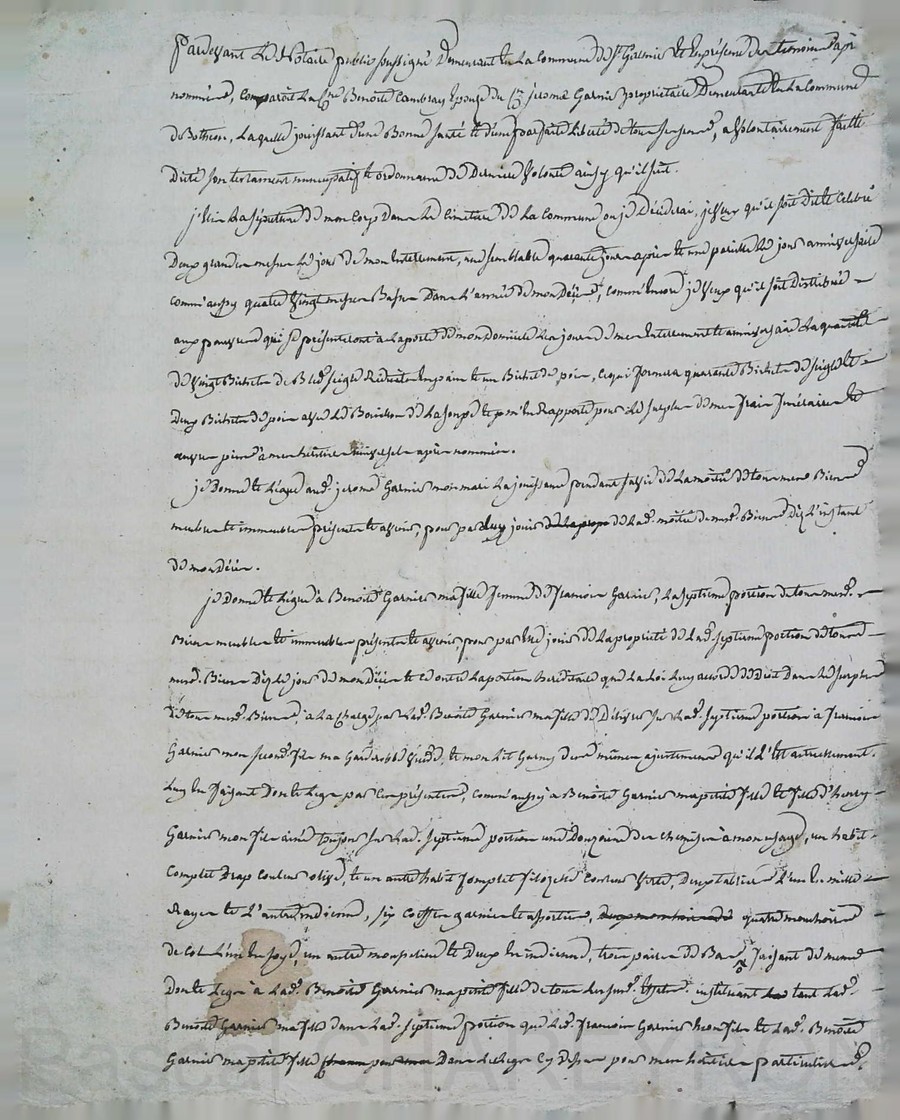 Pardevant Le Notaire public soussigné Demeurant en La Commune de St Galmier et En présence des temoins Bas
nommés, comparait La Cne Benoite Cambray Epouse du Cn jerome Garnier proprietaire Demeurante En La Commune
de Bothéon, Laquelle jouissant d'une Bonne santé et d'une parfaite Liberté de tous ses sens, a volontairement fait et
Dicté son testament nuncupatif et ordonnance de Derniere volonté ainsy qu'il suit.
j'Elis La sepulture de mon Corps Dans Le Cimetiere de La Commune ou je Décèderai, je veux qu'il soit Dit et Celebré
Deux grandes messes Le jour de mon Enterrement, une semblable quarante jours après et une pareille Le jour anniversaire
comm'aussy quatre vingt messes Basses Dans L'année de mon Décès, comm'encore je veux qu'il soit Distribué
aux pauvres qui se présenteront a La porte de mon Domicile Les jours de mes Enterrement et anniversaire La quantité
de vingt Bichets de Bled seigle Réduits En pain et un Bichet de pois, ce qui formera quarante Bichets de seigle et
Deux Bichets de pois avec Le Bouillon de La soupe et je m'En Rapporte pour Le surplus de mes frais funéraires et
œuvres pies à mes héritiers universels après nommés.
je Donne et Légue aud. jerome Garnier mon mari La jouissance pendant sa vie de La moitié de tous mes Biens
meubles et immeubles présents et avenir, pour par Luy jouir de Lad. moitié de mesd. Biens Dez L'instant
de mon Décès.
je Donne et Légue à Benoite Garnier ma fille femme de francois Garnier, La septieme portion de tous mesd.
Biens meubles et immeubles présents et avenir, pour par Elle jouir de La propriété de Lad. septieme portion de tous
mesd. Biens Dez Le jour de mon Décès et ce outre La portion héréditaire que La Loi Luy accorde de Droit Dans Le surplus
de tous mesd. Biens, à La Charge par Lad. Benoite Garnier ma fille de Délivrer sur Lad. septieme portion à francois
Garnier mon second fils ma Garderobe, et mon Lit Garny des mêmes ajustements qu'il L'Est actuellement.
Luy En faisant Don et Legs par Ces présentes, comm'aussy à Benoite Garnier ma petite fille et fille d'henry
Garnier mon fils ainé toujours sur Lad. septieme portion une Douzaine de chemises à mon usage, un habit
Complet Drap couleur olive, et un autre habit Complet Couleur verte, Deux tabliers L'un En
Rayée et L'autre indienne, six coiffes garnies et assorties, quatre mouchoirs
de Col L'un En soye, un autre mousseline et Deux En indienne, trois paires de Bas faisant de meme
Don et Legs à Lad. Benoite Garnier ma petite fille de tous Lesd. instituant tant Lad.
Benoite Garnier ma fille dans Lad. septieme portion que Led. francois Garnier mon fils et Lad. Benoite
Garnier ma petite fille Dans Le Legs Cy Dessus pour mes héritiers particuliers.